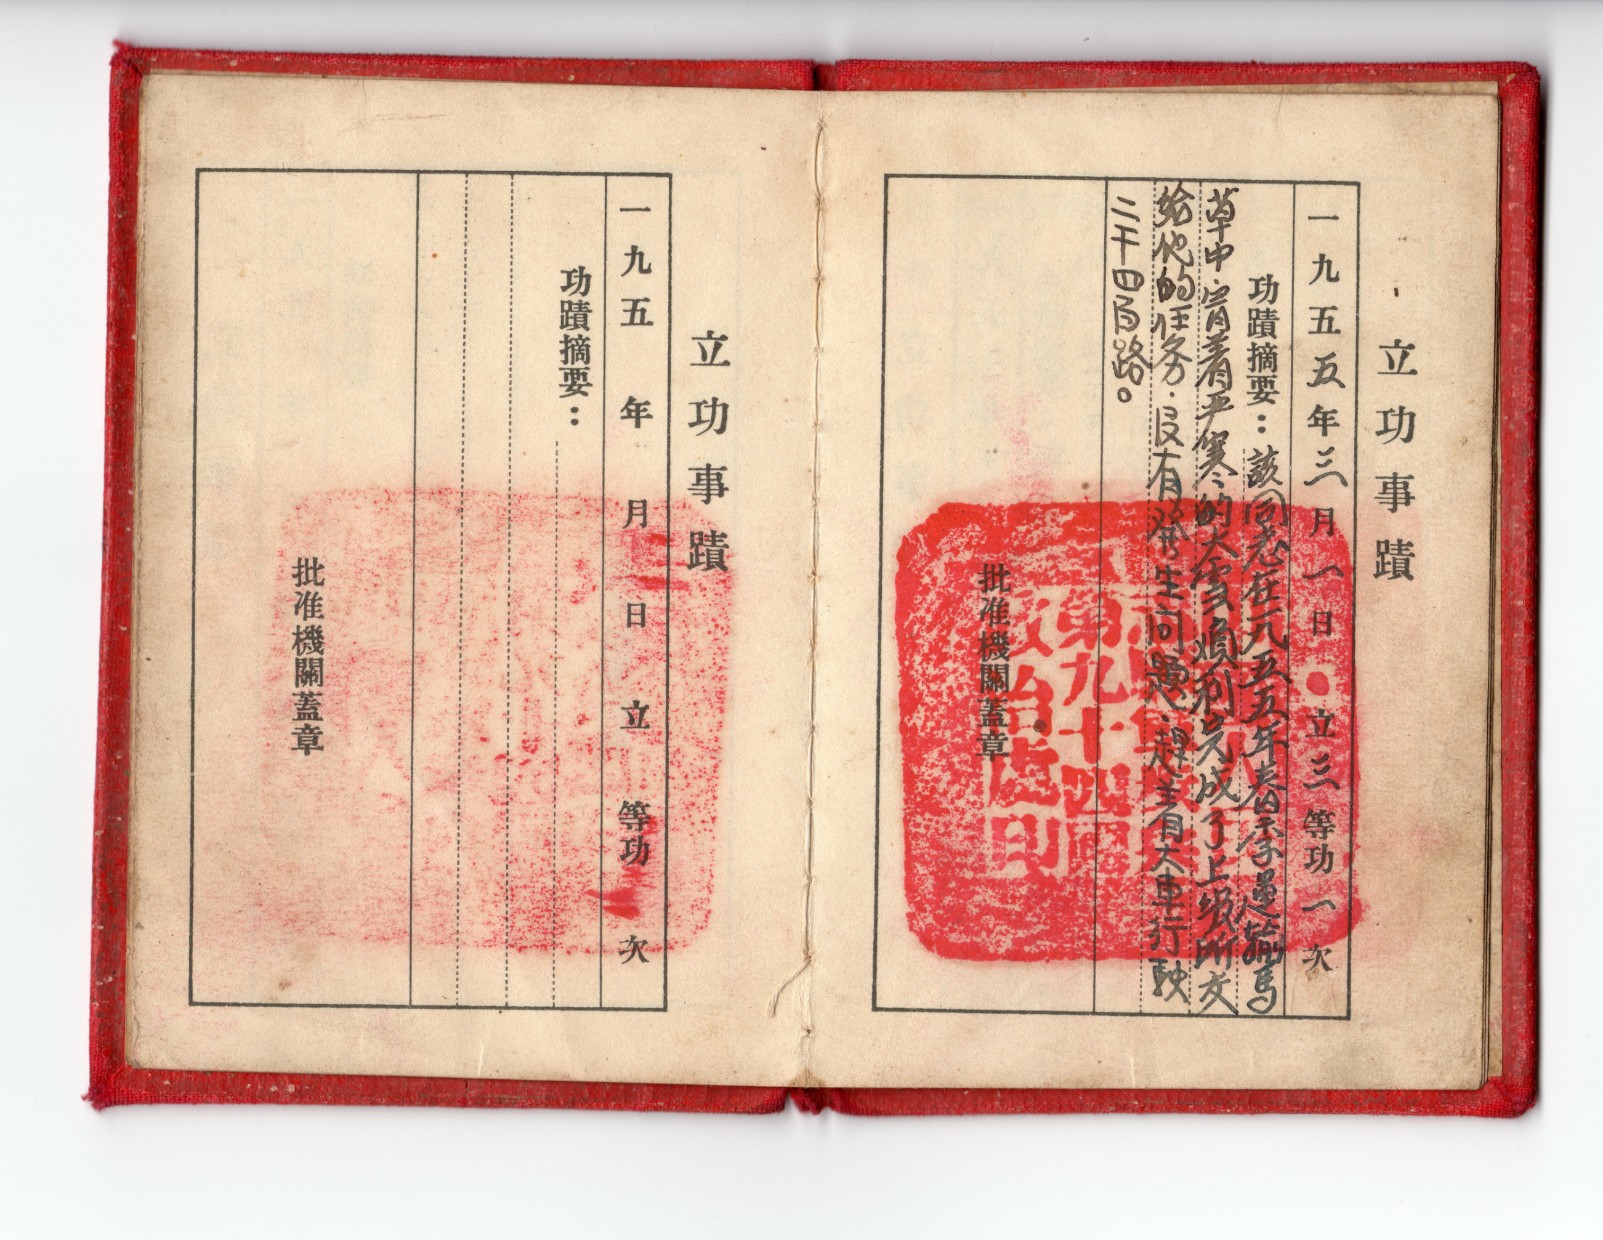 立功事蹟
一九五五年三月一日立三等功一次
功蹟摘要：該同志在一九五五年春季運輸馬
草中.冒着严寒的大雪順利完成了上級所交
给他的任务.没有發生问題.趕着大車行驶
二千四百路。
批准機關蓋章
第九十四團
政治處印
立功事蹟
一九五 年 月 日 立 等功 次
功蹟摘要：
批准機關蓋章